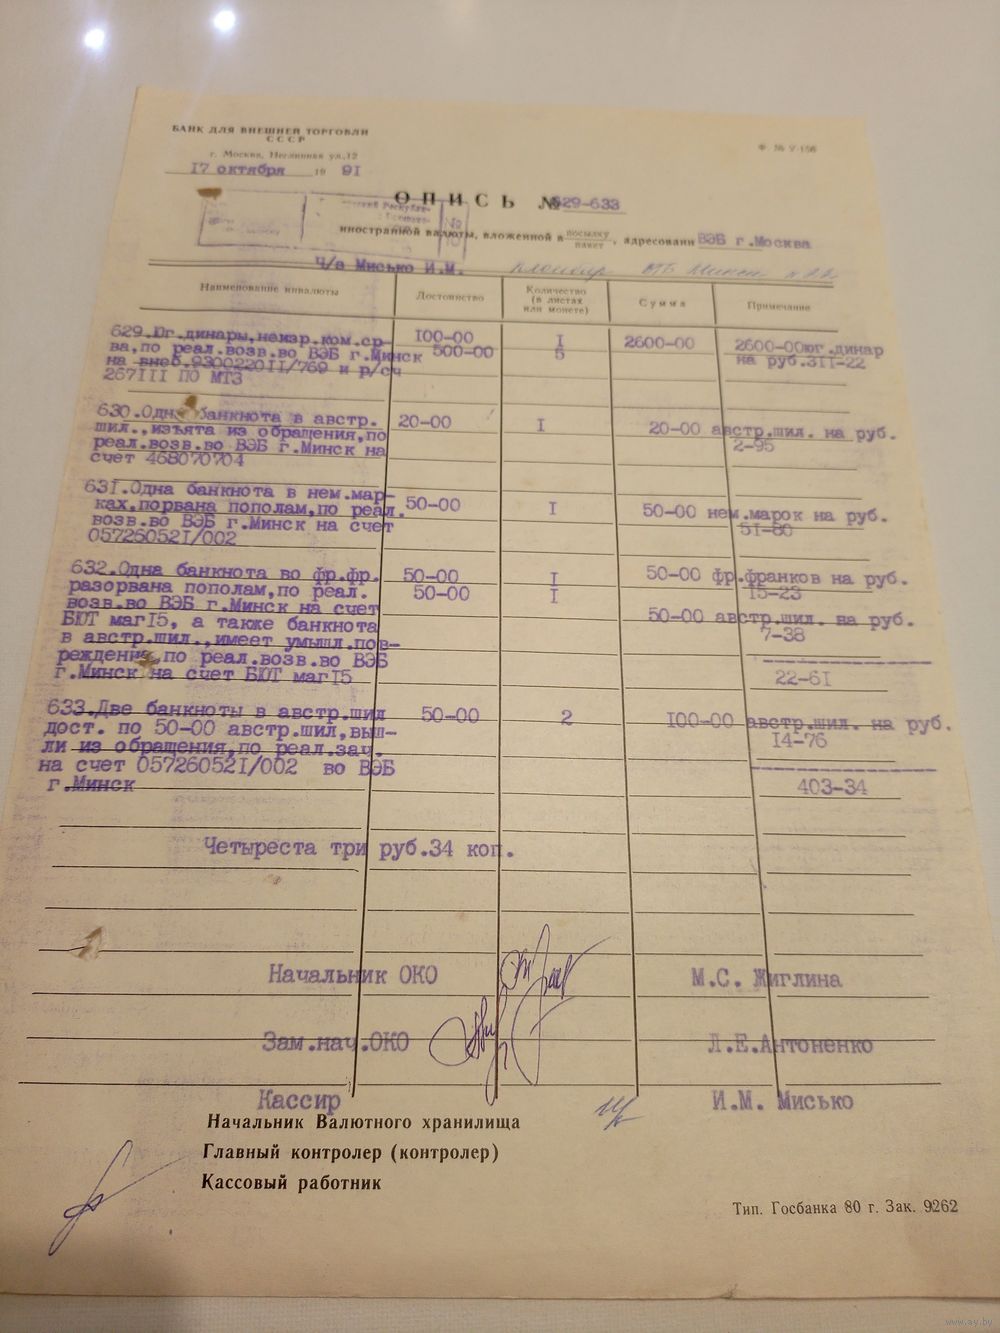 БАНК ДЛЯ ВНЕШНЕЙ ТОРГОВЛИ
СССР
г. Москва, Неглинная ул.,12
Ф. № V-156
17 октября 19 91
ОПИСЬ № 629-633
иностранной валюты, вложенной в посылку пакет, адресовани ВЭБ г.Москва
Ч/а Мисько И.М.
Наименование инвалюты Достоинство Количество (в листах или монете) Сумма Примечание
629.Юг.динары,неизр.ком.ср- 100-00 I 2600-00 2600-00юг.динар
ва,по реал.возв.во ВЭБ г.Минск 500-00 5 на руб.3II-22
на внеб.930022011/769 и р/сч
267III ПО МТЗ
630.Одна банкнота в австр. 20-00 I 20-00 австр.шил. на руб.
шил.,изъята из обращения,по 2-95
реал.возв.во ВЭБ г.Минск на
счет 468070704
631.Одна банкнота в нем.мар-
ках,порвана пополам,по реал. 50-00 I 50-00 нем.марок на руб.
возв.во ВЭБ г.Минск на счет 51-80
057260521/002
632.Одна банкнота во фр.фр. 50-00 I 50-00 фр.франков на руб.
разорвана пополам,по реал. 50-00 I 15-23
возв.во ВЭБ г.Минск на счет 50-00 австр.шил. на руб.
БЮТ маг15, а также банкнота 7-38
в австр.шил.,имеет умышл.пов-
реждения,по реал.возв.во ВЭБ
г.Минск на счет БЮТ маг15 22-61
633.Две банкноты в австр.шил 50-00 2 100-00 австр.шил. на руб.
дост. по 50-00 австр.шил,выш- 14-76
ли из обращения,по реал.зач.
на счет 057260521/002 во ВЭБ
г.Минск 403-34
Четыреста три руб.34 коп.
Начальник ОКО М.С. Жиглина
Зам.нач.ОКО Л.Е.Антоненко
Кассир И.М. Мисько
Начальник Валютного хранилища
Главный контролер (контролер)
Кассовый работник
Тип. Госбанка 80 г. Зак. 9262
www.ay.by